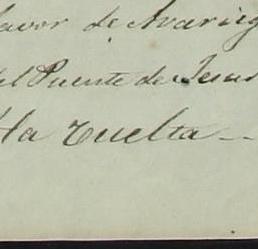 favor de Avarizq
el Puente de Jesus
la vuelta